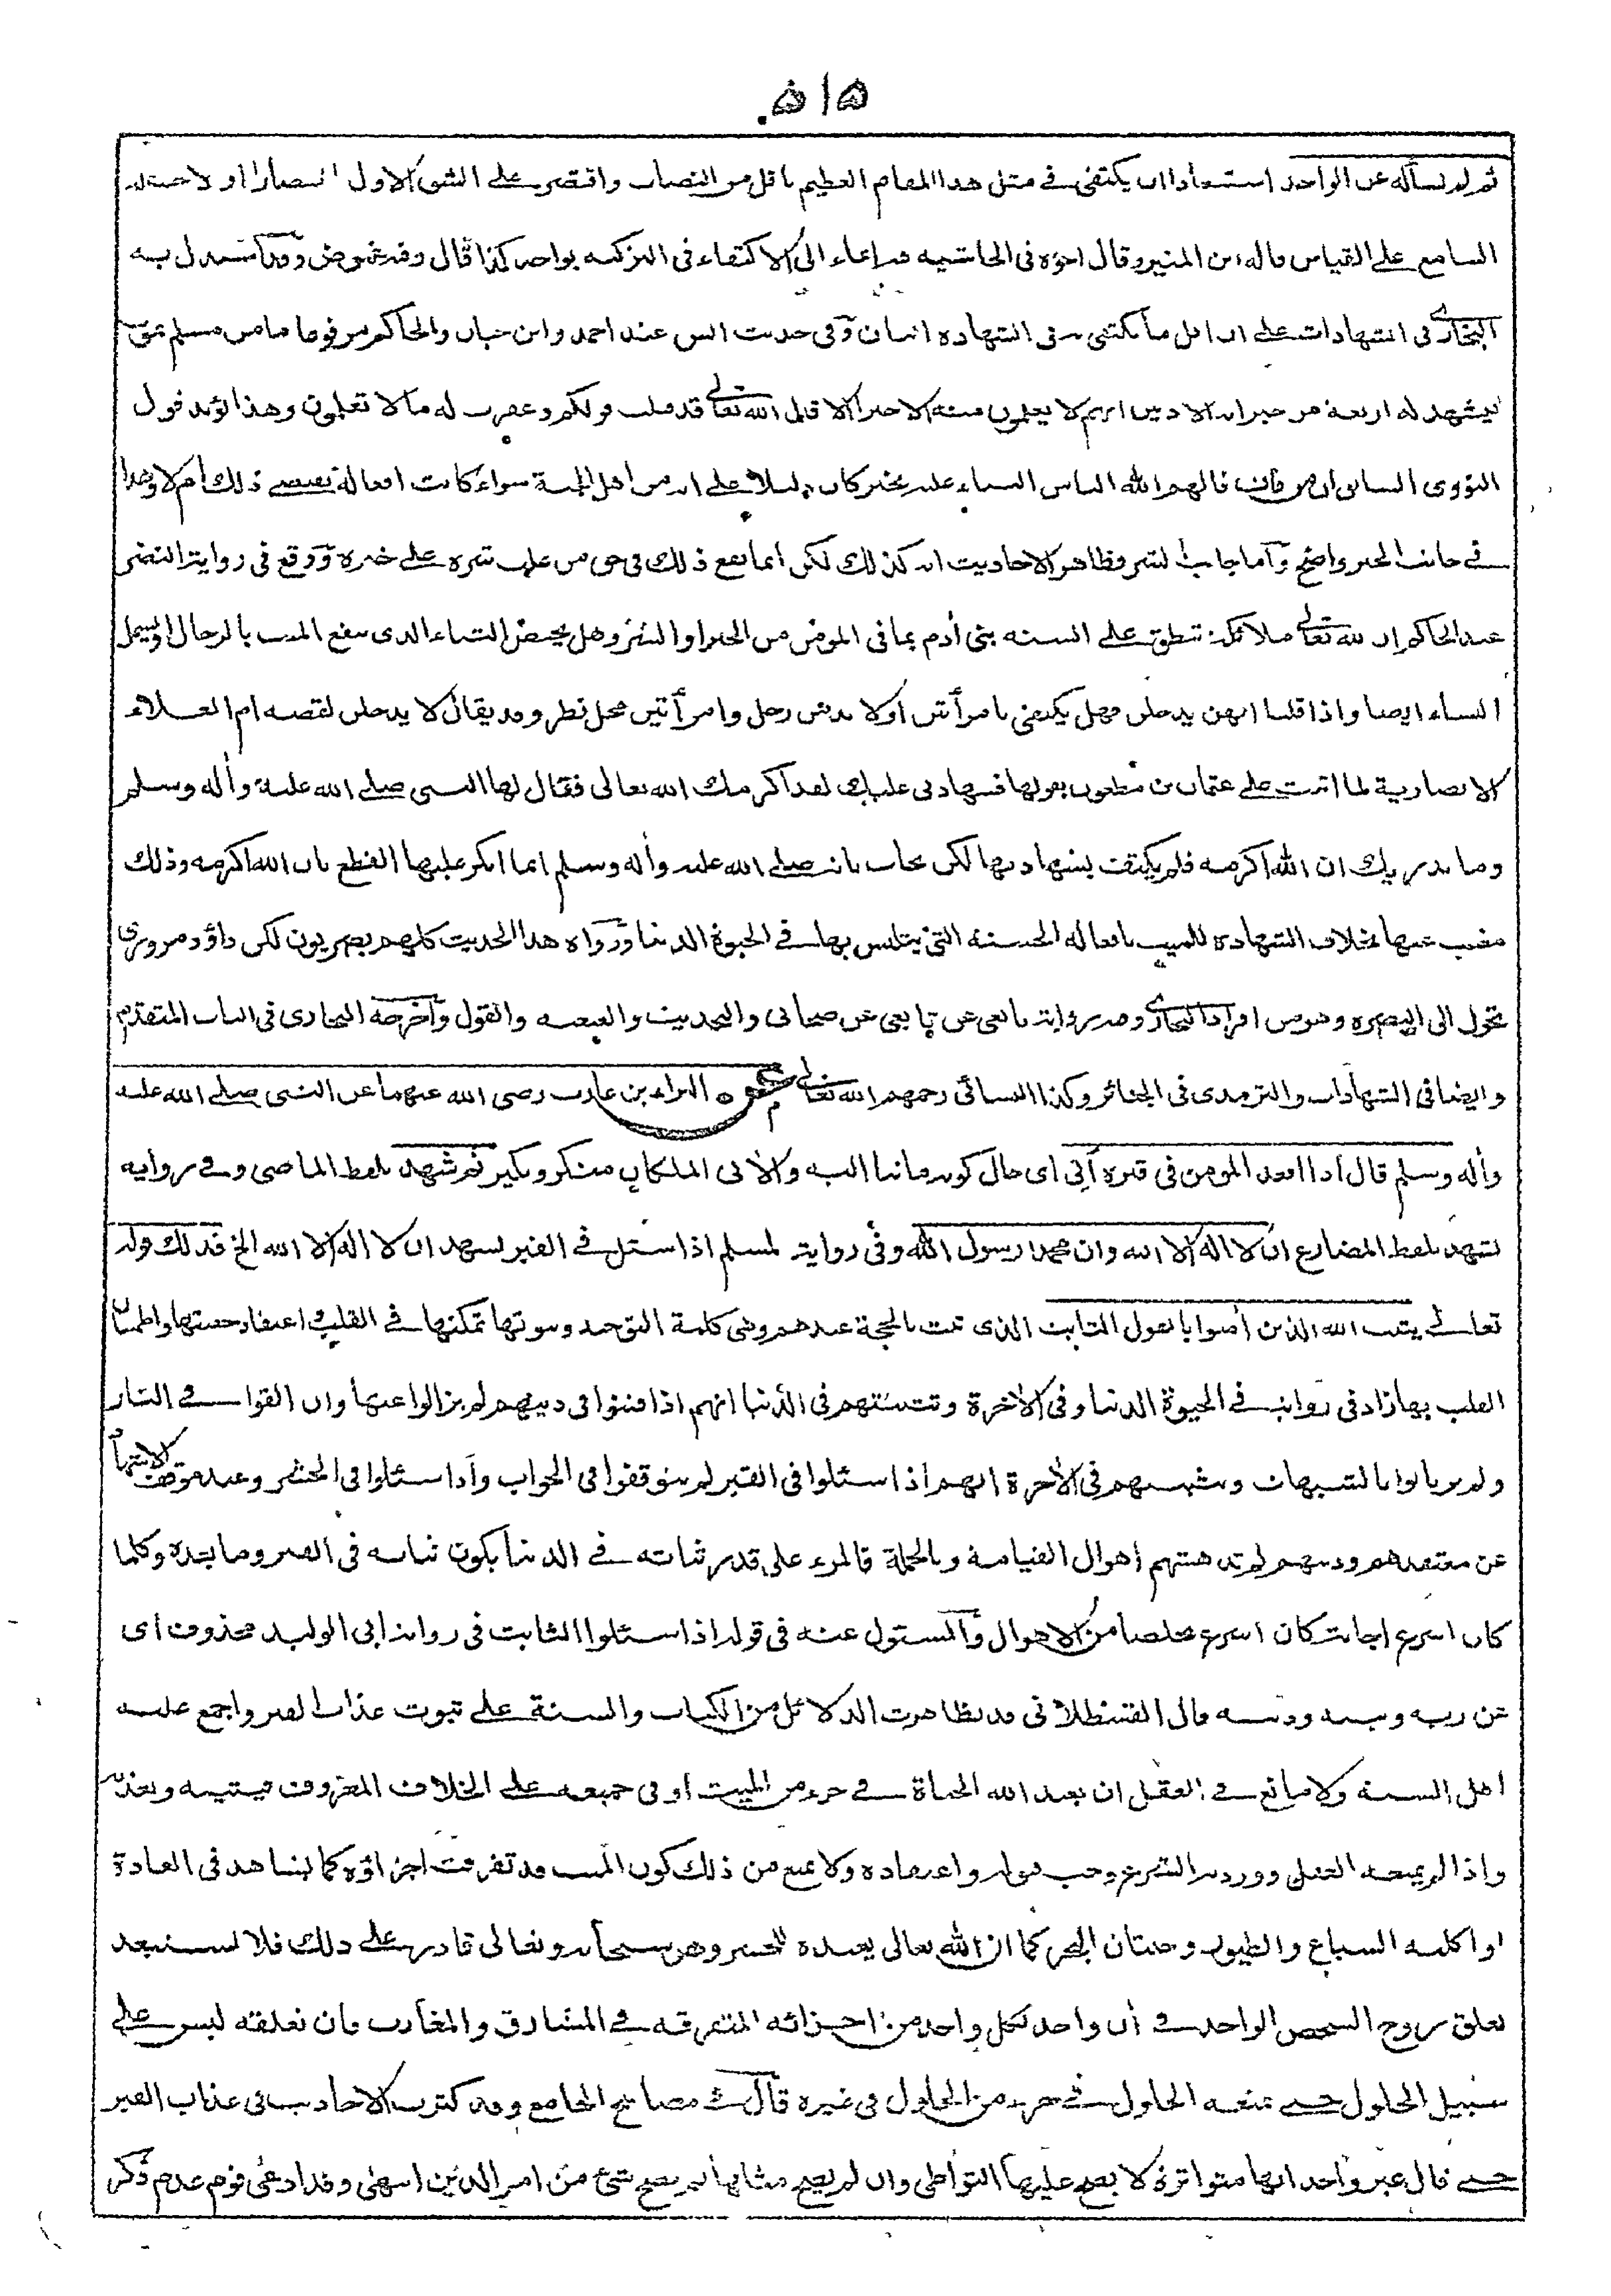 ٥١٥
ثم لم نسأله عن الواحد استبعادا ان يكتفى فے مثل هذا المقام العظيم باقل من النصاب واقتصر علے الشق الاول اختصارا او لاحالة
السامع علے القياس قاله ابن المنير وقال اخوه فى الحاشيه فيه ايماء الى الاكتفاء فى التزكيه بواحد كذا قال وفيه غموض وقد استدل به
البخاري فى الشهادات علے ان اقل ما يكتفى به فى الشهاده اثنان وفى حديث انس عند احمد وابن حبان والحاكم مرفوعا ما من مسلم يموت
فيشهد له اربعة من جيرانه الادنين انهم لا يعلمون منه الا خيرا الا قال الله تعالى قد قبلت قولكم وغفرت له ما لا تعلمون وهذا يؤيد قول
النووى السابق ان من مات فالهم الله الناس الثناء عليه بخير كان دليلا علے انه من اهل الجنة سواء كانت افعاله تقتضے ذلك ام لا وهذا
فے جانب الخير واضح وأما جانب الشر فظاهر الاحاديث انه كذلك لكن انما يقع ذلك فى حق من غلب شره علے خيره ووقع فى رواية النضر
عند الحاكم ان لله تعالى ملائكة تنطق علے السنه بنى أدم بما فى المؤمن من الخير او الشر وهل يختص الثناء الذى ينفع الميت بالرجال او يشمل
النساء ايضا واذا قلنا انهن يدخلن فهل يكتفى بامرأتين أو لا بد من رجل وامرأتين محل نظر وقد يقال لا يدخلن لقصه ام العلاء
الانصارية لما اثنت علے عثمان بن مظعون بقولها فشهادتى عليك لقد اكرمك الله تعالى فقال لها النبى صلے الله عليه وأله وسلم
وما يدريك ان الله اكرمه فلم يكتف بشهادتها لكن يجاب بانه صلے الله عليه وأله وسلم انما انكر عليها القطع بان الله اكرمه وذلك
مغيب عنها بخلاف الشهاده للميت بافعاله الحسنه التى يتلبس بها فے الحيوة الدنيا ورواه هذا الحديث كلهم بصريون لكن داؤد مروزى
تحول الى البصره وهو من افراد البخارى وفيه رواية تابعى عن تابعى عن صحابى والتحديث والعنعنه والقول وأخرجه البخارى فى الباب المتقدم
وايضا فى الشهادات والترمذى فى الجنائز وكذا النسائى رحمهم الله تعالى البراء بن عازب رضى الله عنهما عن النبى صلے الله عليه
وأله وسلم قال اذا اقعد المومن فى قبره أتي اى حال كونه ماتيا اليه والاتى الملكان منكر ونكير ثم شهد بلفظ الماضى وفے روايه
يشهد بلفظ المضارع ان لا اله الا الله وان محمدا رسول الله وفى رواية لمسلم اذا سئل فے القبر يشهد ان لا اله الا الله الخ فذلك قوله
تعالى يثبت الله الذين أمنوا بالقول الثابت الذى ثبت بالحجة عندهم وهى كلمة التوحيد وثبوتها تمكنها فے القلب واعتقاد حقيتها واطمينان
القلب بها زاد فى رواية فے الحيوة الدنيا وفى الاخرة وتثبيتهم فى الدنيا انهم اذا فتنوا فى دينهم لم يزالوا عنها وان القوا فے النار
ولم يرتابوا بالشبهات وتثبيتهم فى الاخرة انهم اذا سئلوا فى القبر لم يتوقفوا فى الجواب واذا سئلوا فى الحشر وعند موقف الاشهاد
عن معتقدهم ودينهم لم تدهشهم اهوال القيامة وبالجملة فالمرء على قدر ثباته فے الدنيا يكون ثباته فى القبر وما بعده وكلما
كان اسرع اجابة كان اسرع تخلصا من الاهوال والمسئول عنه فى قوله اذا سئلوا الثابت فى رواية ابى الوليد محذوف اى
عن ربه ونبيه ودينه قال القسطلانى قد تظاهرت الدلائل من الكتاب والسنة علے ثبوت عذاب القبر واجمع عليه
اهل السنه ولا مانع فے العقل ان يعيد الله الحياة فے جزء من الميت او فى جميعه علے الخلاف المعروف فيثيبه ويعذبه
واذا لم يمنعه العقل وورد به الشرع وجب قبوله واعتقاده ولا يمنع من ذلك كون الميت قد تفرقت اجزاؤه كما يشاهد فى العادة
او اكلته السباع والطيور وحيتان البحر كما ان الله تعالى يعيده للحشر وهو سبحانه وتعالى قادر علے ذلك فلا يستبعد
تعلق روح الشخص الواحد فے أن واحد بكل واحد من اجزائه المتفرقه فے المشارق والمغارب فان تعلقه ليس علے
سبيل الحلول حتے يمنعه الحلول فے جزء من الحلول فى غيره قال فے مصابيح الجامع وقد كثرت الاحاديث فى عذاب القبر
حتے قال غير واحد انها متواترة لا يصح عليها التواطى وان لم يصح مثلها لم يصح شئ من امر الدين انتهى وقد ادعى قوم عدم ذكر